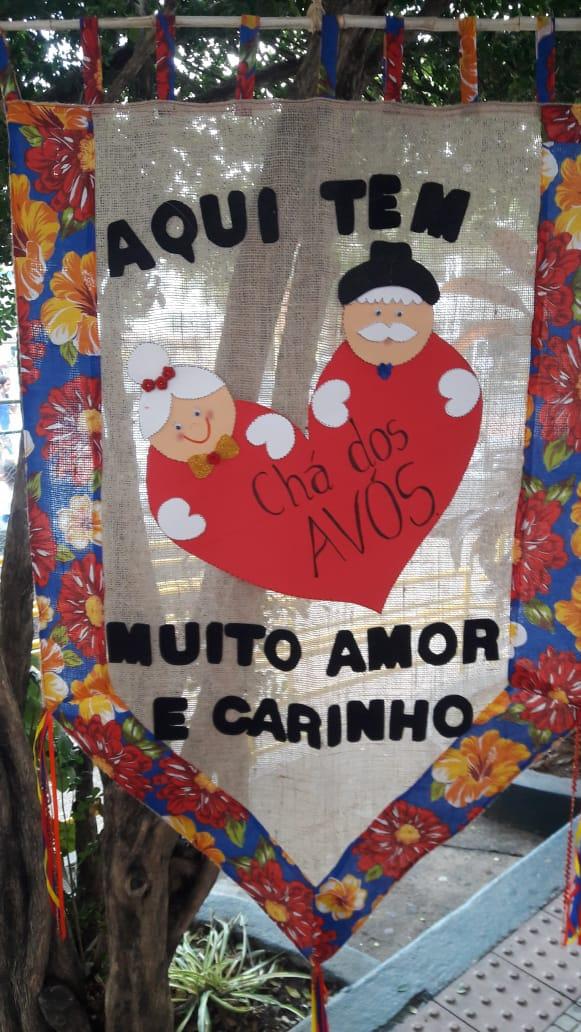 AQUI TEM
Chá dos
AVÓS
MUITO AMOR
E CARINHO